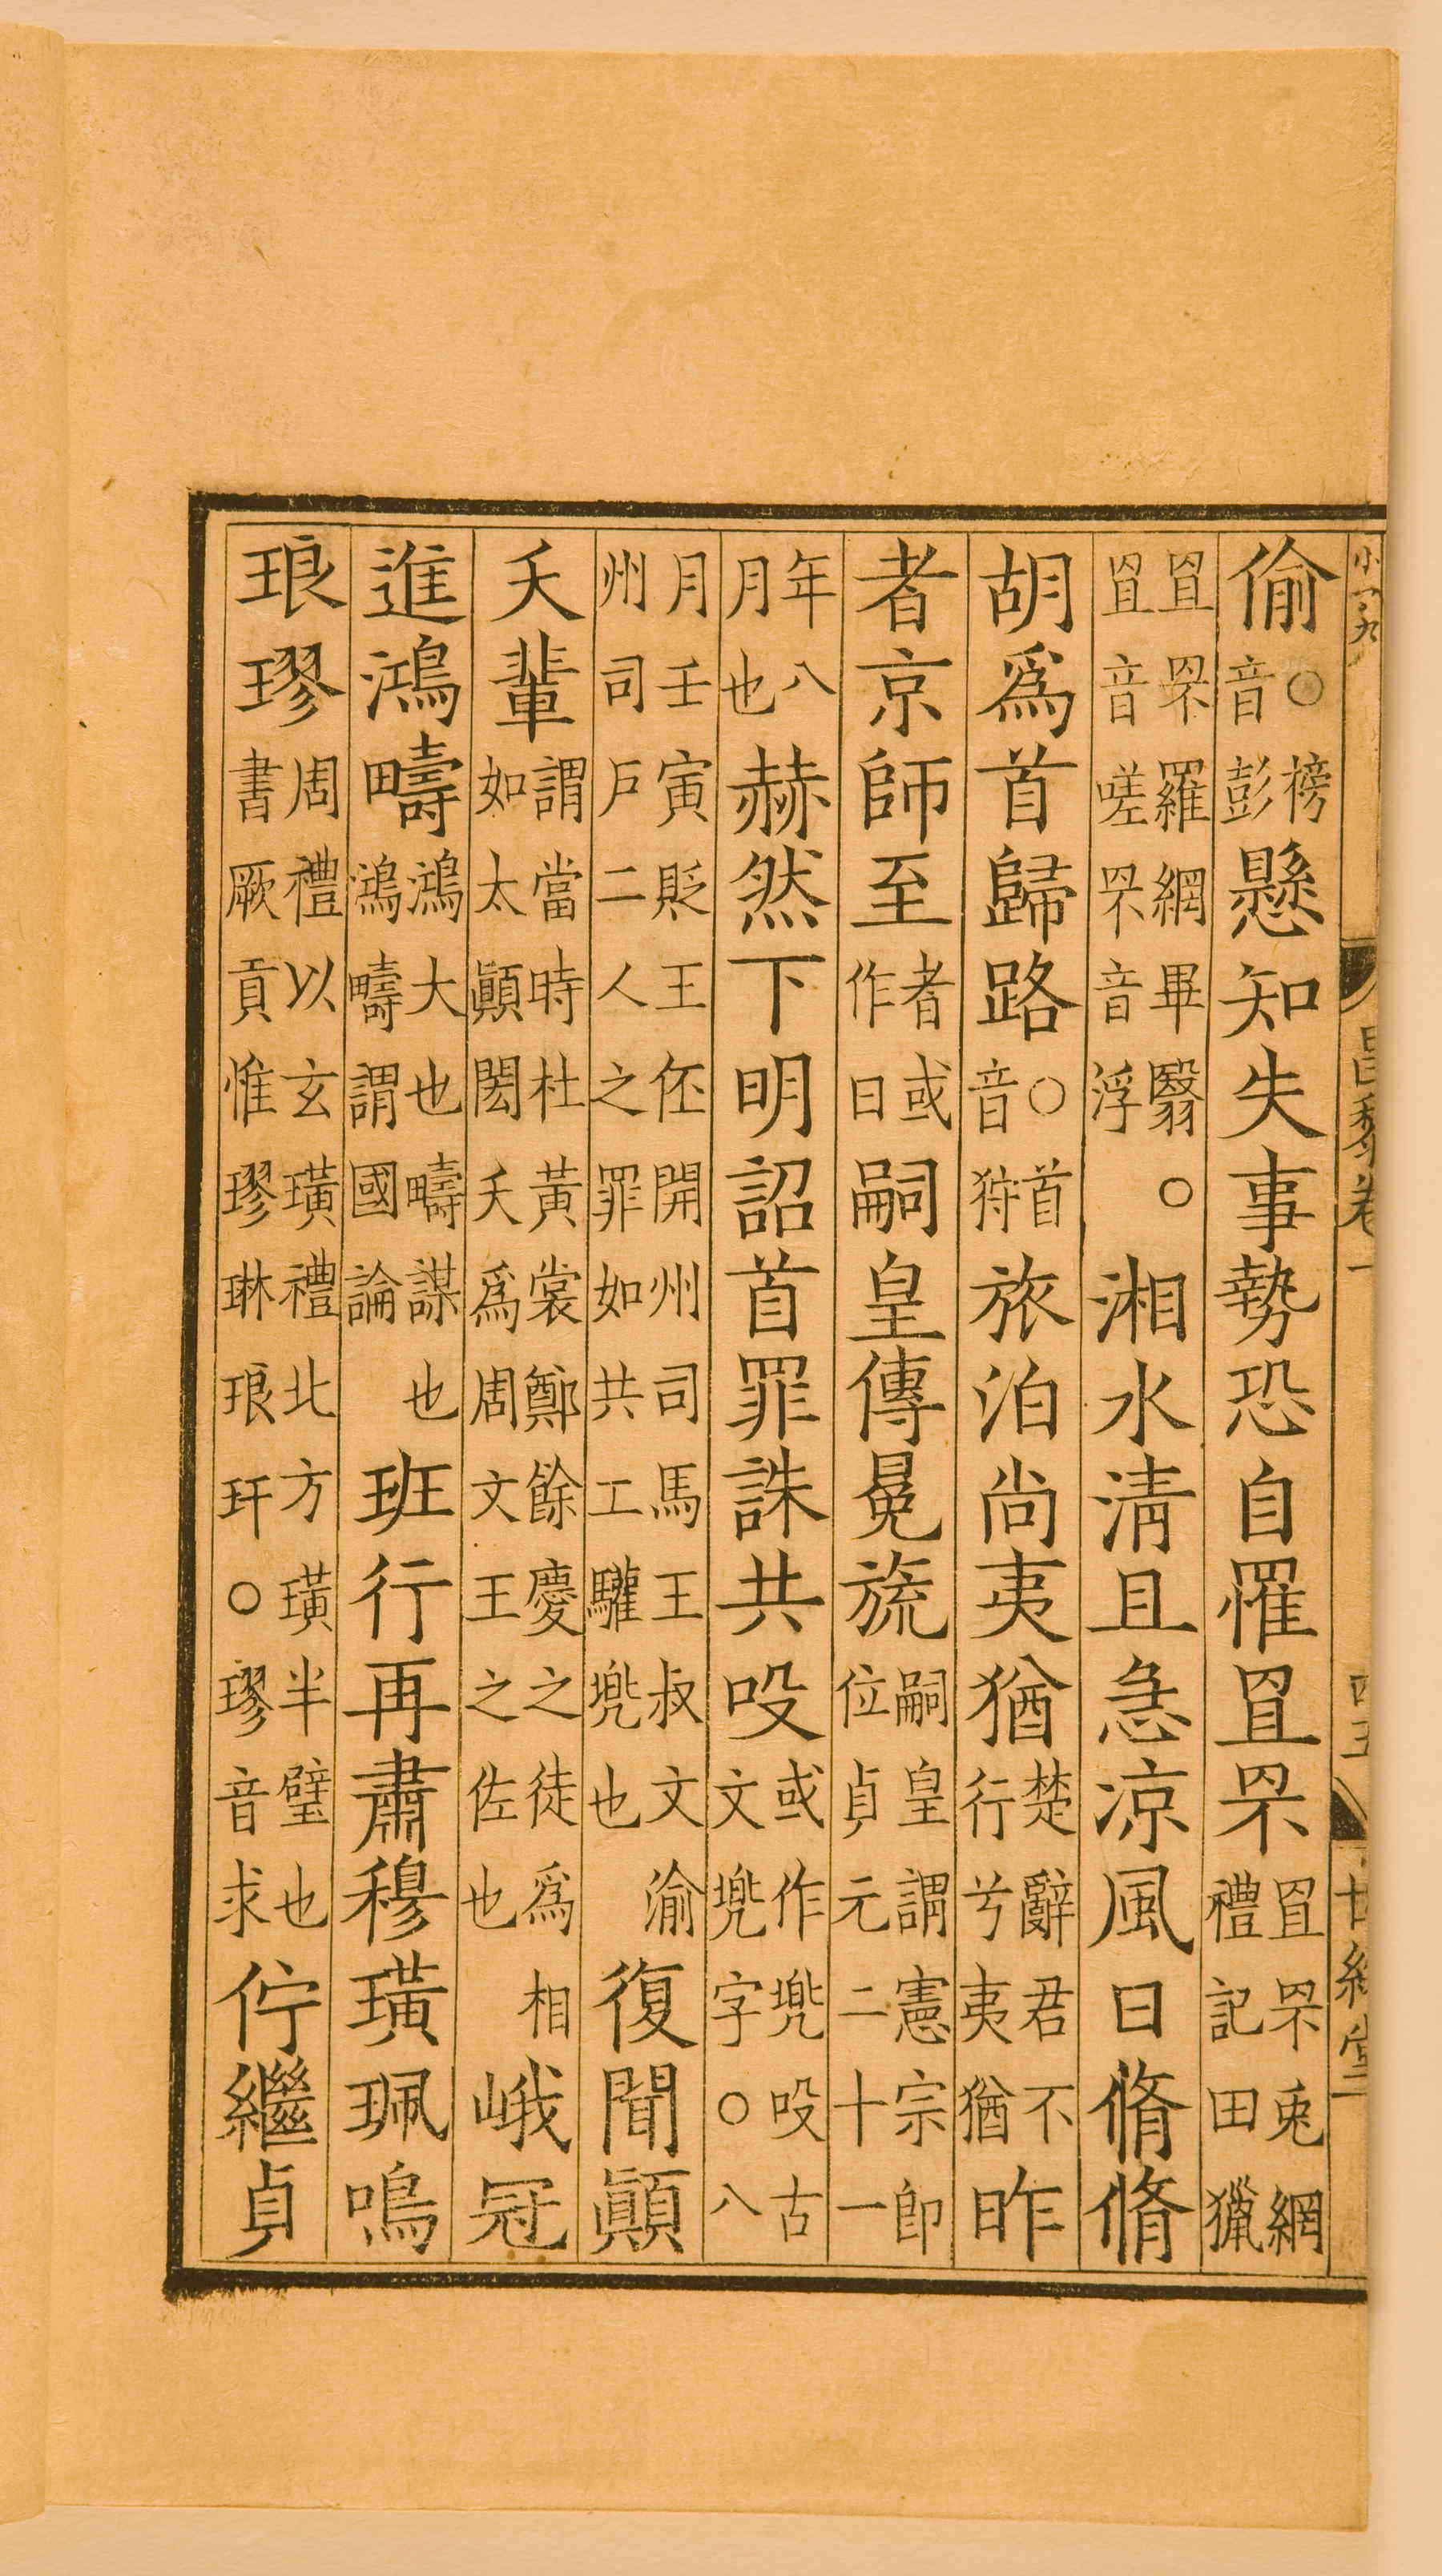 偷○榜音彭懸知失事勢恐自罹罝罘罝罘兎網禮記田獵
罝罘羅網畢翳○罝音嗟罘音浮湘水清且急涼風日脩脩
胡為首歸路○首音狩旅泊尚夷猶楚辭君不行兮夷猶昨
者京師至者或作日嗣皇傳冕旒嗣皇謂憲宗卽位貞元二十一
年八月也赫然下明詔首罪誅共吺或作兠吺古文兠字○八
月壬寅貶王伾開州司馬王叔文渝州司戶二人之罪如共工驩兠也復聞顚
夭輩謂當時杜黃裳鄭餘慶之徒為相如太顚閎夭為周文王之佐也峨冠
進鴻疇鴻大也疇謀也鴻疇謂國論班行再肅穆璜珮鳴
琅璆周禮以玄璜禮北方璜半璧也書厥貢惟璆琳琅玕○璆音求佇繼貞